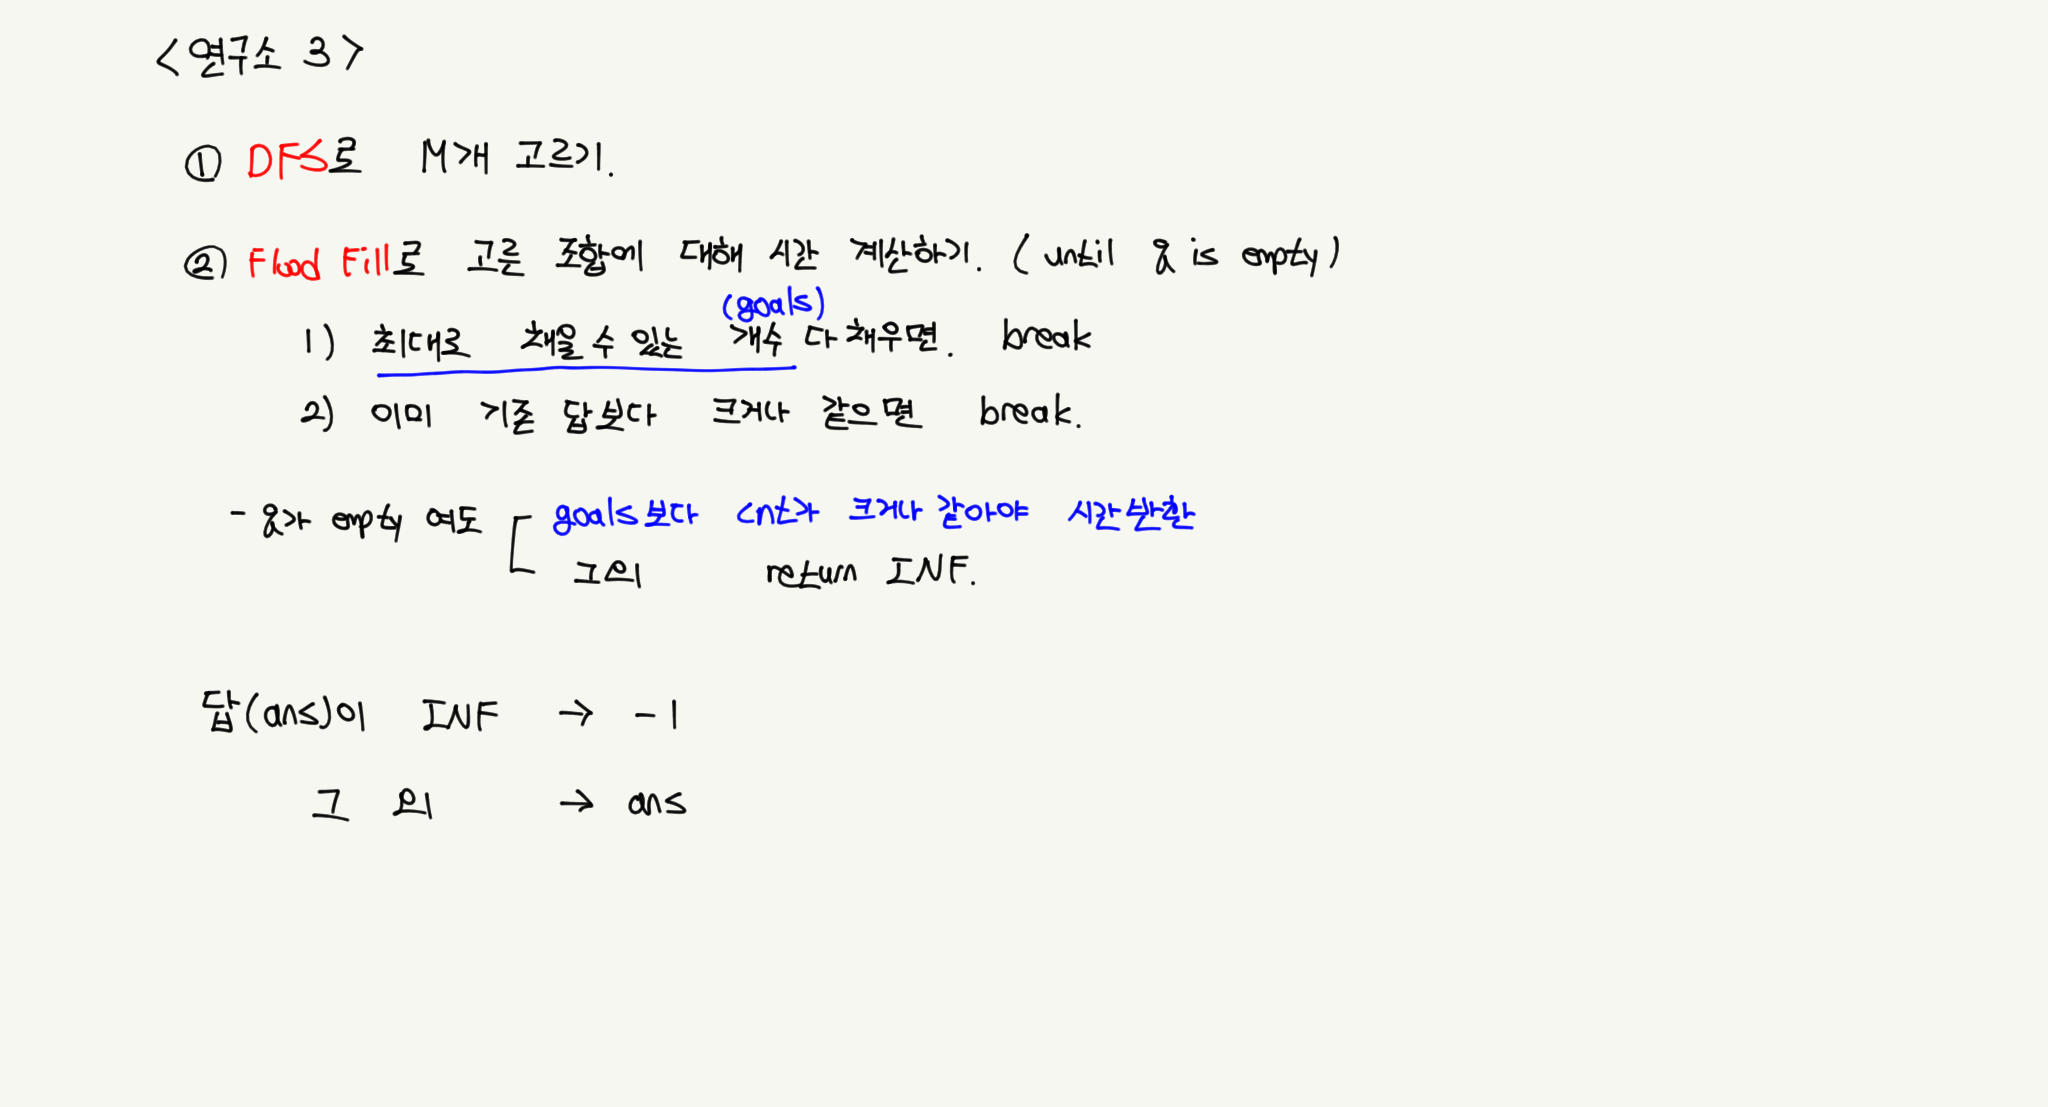 <연구소 3>
① DFS로 M개 고르기.
② Flood Fill로 고른 조합에 대해 시간 계산하기. (until q is empty)
(goals)
1) 최대로 채울 수 있는 개수 다 채우면. break
2) 이미 기존 답보다 크거나 같으면 break.
- q가 empty 여도 [ goals보다 cnt가 크거나 같아야 시간 반환
그 외 return INF.
답(ans)이 INF → -1
그 외 → ans